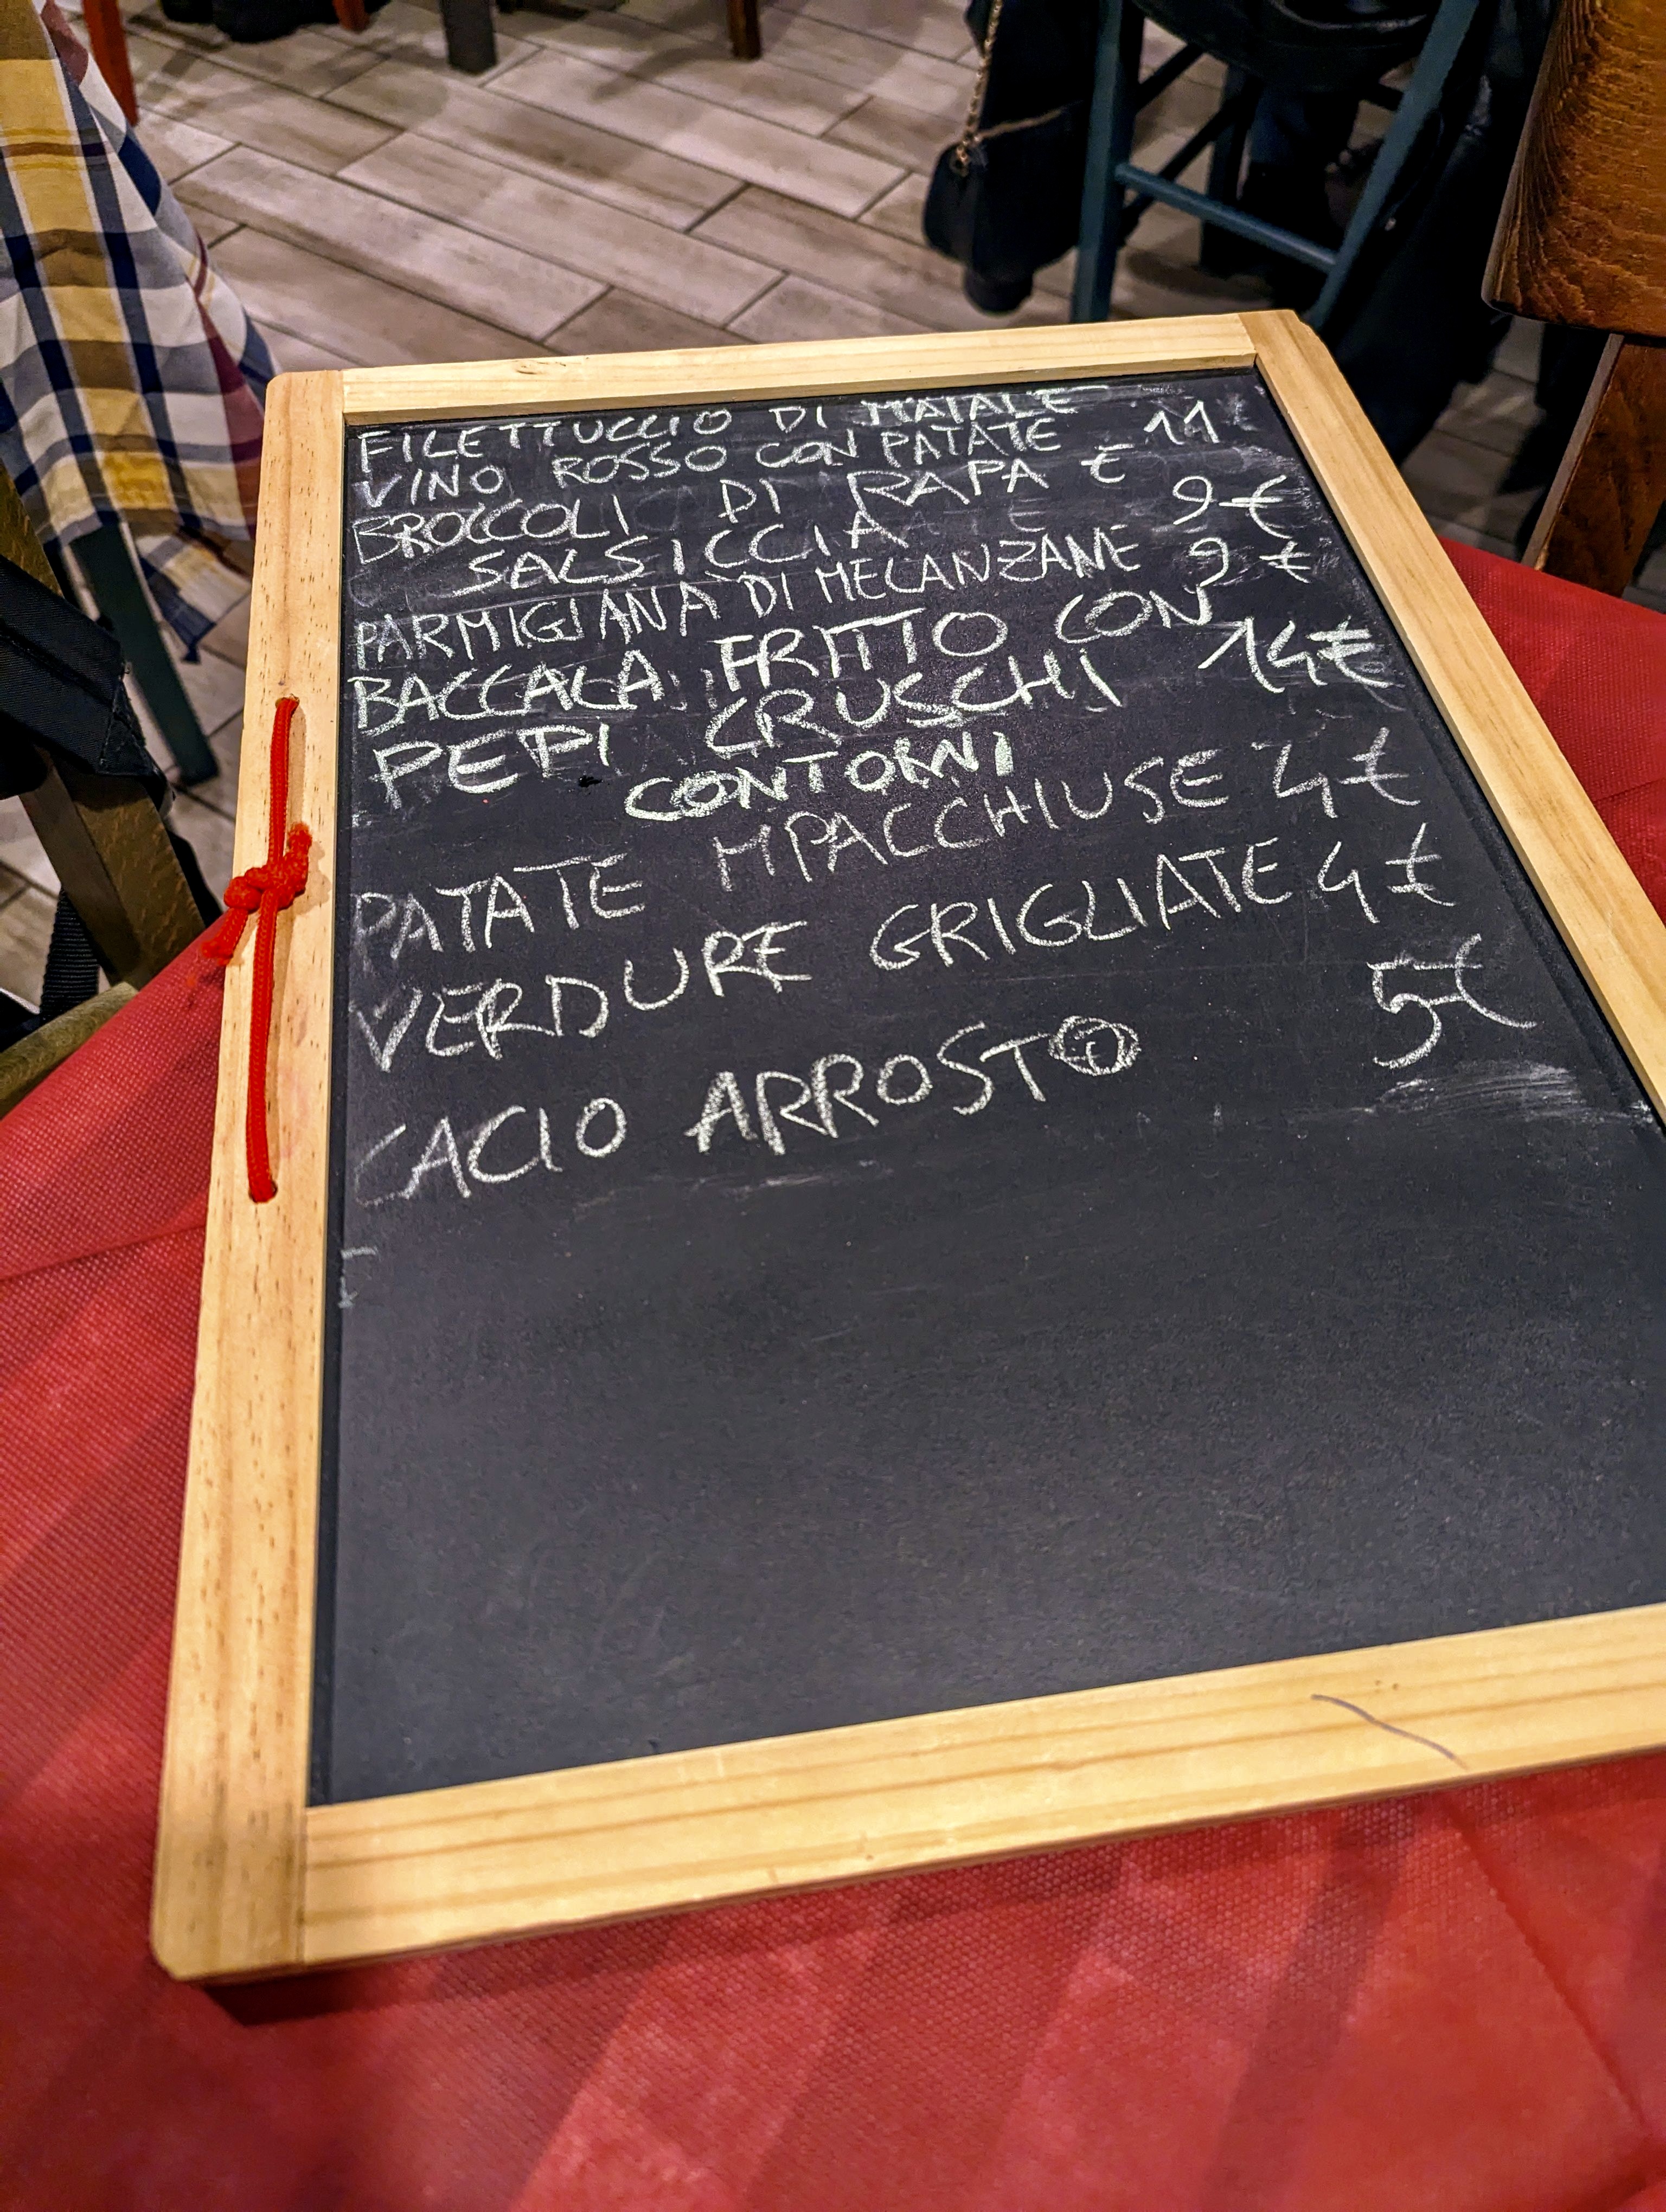 FILETTUCCIO DI MAIALE
VINO ROSSO CON PATATE 11 €
BROCCOLI DI RAPA E
SALSICCIA 9 €
PARMIGIANA DI MELANZANE 9 €
BACCALA FRITTO CON
PEPI CRUSCHI 14 €
CONTORNI
PATATE MPACCHIUSE 4 €
VERDURE GRIGLIATE 4 €
CACIO ARROSTO 5 €